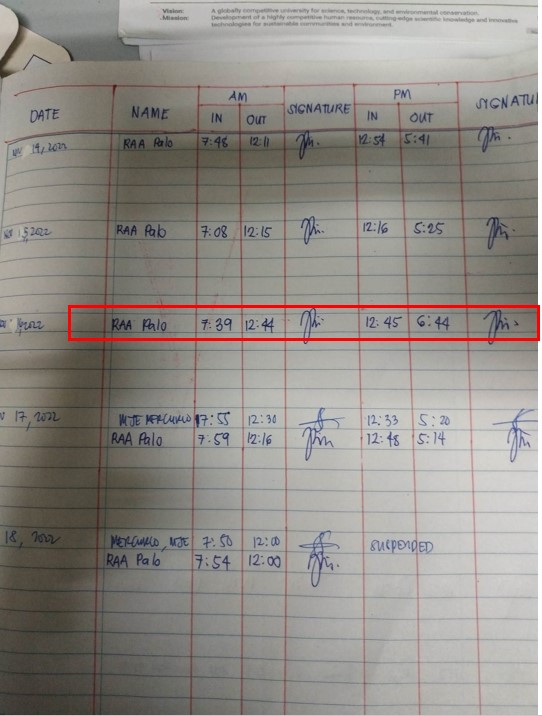 Vision: A globally competitive university for science, technology, and environmental conservation.
Mission: Development of a highly competitive human resource, cutting-edge scientific knowledge and innovative
technologies for sustainable communities and environment.
AM PM
DATE NAME IN OUT SIGNATURE IN OUT SIGNATU
14, 2022 RAA Palo 7:48 12:11 12:54 5:41
15, 2022 RAA Palo 7:08 12:15 12:16 5:25
2022 RAA Palo 7:39 12:44 12:45 6:44
17, 2022 MJE MERCURIO 7:55 12:30 12:33 5:20
RAA Palo 7:59 12:16 12:48 5:14
18, 2022 MERCURIO, MJE 7:50 12:00 SUSPENDED
RAA Palo 7:54 12:00